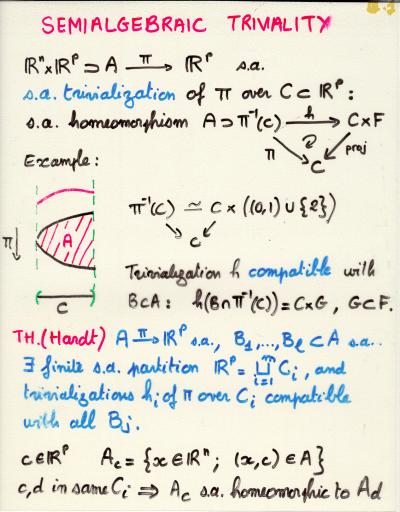 SEMIALGEBRAIC TRIVIALITY
ℝⁿ×ℝᵖ ⊃ A —π→ ℝᵖ s.a.
s.a. trivialization of π over C ⊂ ℝᵖ :
s.a. homeomorphism A ⊃ π⁻¹(C) —h→ C×F
π ↻ proj
C
Example :
π⁻¹(C) ≃ C × ((0,1) ∪ {2})
C
π↓
A
C
Trivialization h compatible with
B⊂A : h(B∩π⁻¹(C)) = C×G , G⊂F.
TH.(Hardt) A —π→ ℝᵖ s.a., B₁,...,Bℓ ⊂ A s.a..
∃ finite s.a. partition ℝᵖ = ⊔ᵢ₌₁ᵐ Cᵢ, and
trivializations hᵢ of π over Cᵢ compatible
with all Bⱼ.
c∈ℝᵖ A_c = {x∈ℝⁿ ; (x,c) ∈ A}
c,d in same Cᵢ ⟹ A_c s.a. homeomorphic to A_d